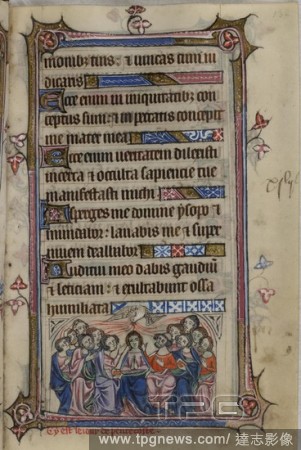 monibz tuis : & uincas cum iu
dicaris
Ecce enim in iniquitatibz con
ceptus sum : & in peccatis concepit
me mater mea
Ecce enim ueritatem dilexisti
incerta & occulta sapiencie tue
manifestasti michi
Asperges me domine ysopo &
mundabor : lauabis me & super
niuem dealbabor
Auditui meo dabis gaudiū
& leticiam : & exultabunt ossa
humiliata
TPG
www.tpgnews.com / 達志影像